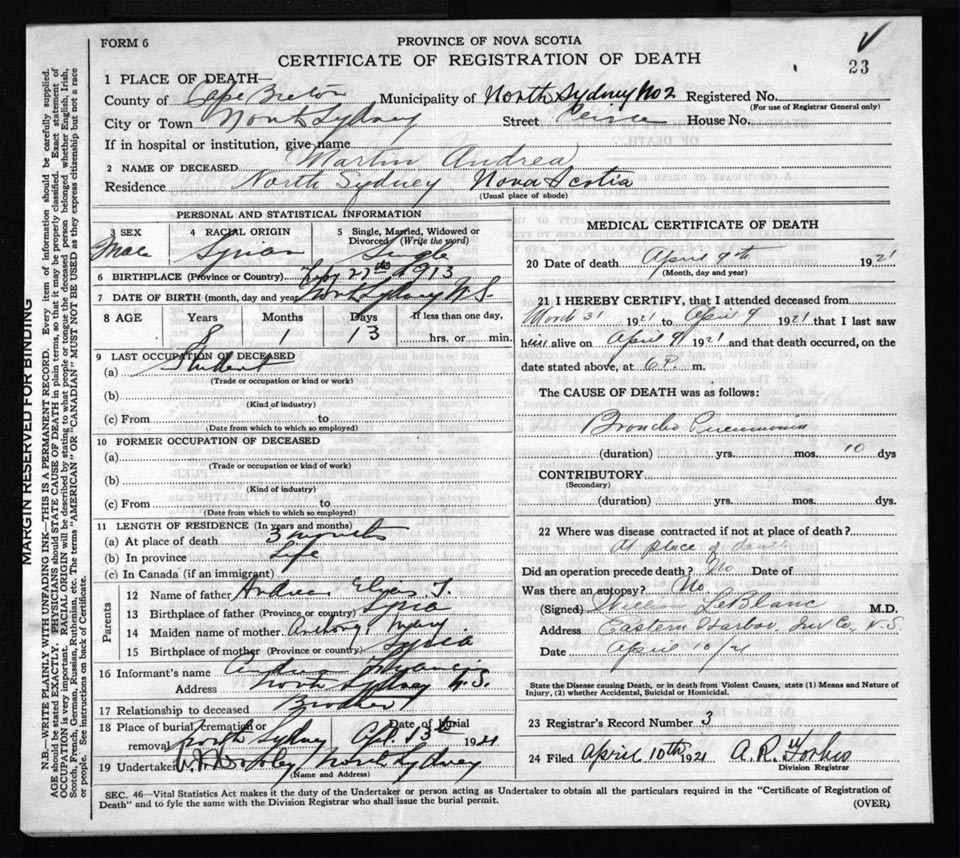 FORM 6
PROVINCE OF NOVA SCOTIA
CERTIFICATE OF REGISTRATION OF DEATH
23
1 PLACE OF DEATH—
County of Cape Breton Municipality of North Sydney No 2 Registered No.
(For use of Registrar General only)
City or Town North Sydney Street Peirce House No.
If in hospital or institution, give name
2 NAME OF DECEASED Martin Andrea
Residence North Sydney Nova Scotia
(Usual place of abode)
PERSONAL AND STATISTICAL INFORMATION
3 SEX 4 RACIAL ORIGIN 5 Single, Married, Widowed or Divorced (Write the word)
Syrian Single
6 BIRTHPLACE (Province or Country) Feby 27th 1913
7 DATE OF BIRTH (month, day and year) North Sydney N.S.
8 AGE Years Months Days If less than one day,
8 1 13 hrs. or min.
9 LAST OCCUPATION OF DECEASED
(a) Student
(Trade or occupation or kind of work)
(b)
(Kind of industry)
(c) From to
(Date from which to which so employed)
10 FORMER OCCUPATION OF DECEASED
(a)
(Trade or occupation or kind of work)
(b)
(Kind of industry)
(c) From to
(Date from which to which so employed)
11 LENGTH OF RESIDENCE (In years and months)
(a) At place of death 3 months
(b) In province Life
(c) In Canada (if an immigrant)
Parents
12 Name of father Andrea Elyas T.
13 Birthplace of father (Province or country) Syria
14 Maiden name of mother Anthony, Mary
15 Birthplace of mother (Province or country) Syria
16 Informant's name Andrea
Address North Sydney N.S.
17 Relationship to deceased Brother
18 Place of burial, cremation or removal North Sydney Date of burial Apl 13th 1921
19 Undertaker North Sydney
(Name and Address)
MEDICAL CERTIFICATE OF DEATH
20 Date of death April 9th 1921
(Month, day and year)
21 I HEREBY CERTIFY, that I attended deceased from
March 31 1921 to April 9 1921 that I last saw
him alive on April 9 1921 and that death occurred, on the
date stated above, at 6 P. m.
The CAUSE OF DEATH was as follows:
Broncho Pneumonia
(duration) yrs. mos. 10 dys
CONTRIBUTORY
(Secondary)
(duration) yrs. mos. dys.
22 Where was disease contracted if not at place of death?
At place of death
Did an operation precede death? No Date of
Was there an autopsy? No
(Signed) William LeBlanc M.D.
Address Eastern Harbor, Inv Co, N.S.
Date April 10/21
State the Disease causing Death, or in death from Violent Causes, state (1) Means and Nature of
Injury, (2) whether Accidental, Suicidal or Homicidal.
23 Registrar's Record Number 3
24 Filed April 10th 1921 A. R. Forbes
Division Registrar
SEC. 46—Vital Statistics Act makes it the duty of the Undertaker or person acting as Undertaker to obtain all the particulars required in the "Certificate of Registration of
Death" and to fyle the same with the Division Registrar who shall issue the burial permit.
(OVER)
MARGIN RESERVED FOR BINDING
N.B.—WRITE PLAINLY WITH UNFADING INK—THIS IS A PERMANENT RECORD. Every item of information should be carefully supplied.
AGE should be stated EXACTLY. PHYSICIANS should STATE CAUSE OF DEATH in plain terms, so that it may be properly classified. Exact statement of
OCCUPATION is very important. RACIAL ORIGIN will be described by stating to what people or tongue the deceased person belonged whether English, Irish,
Scotch, French, German, Russian, Ruthenian, etc. The terms "AMERICAN" OR "CANADIAN" MUST NOT BE USED as they express citizenship but not a race
or people. See instructions on back of Certificate.